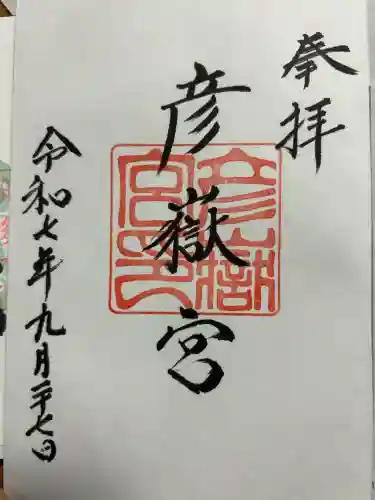 奉拝
彦嶽宮
彦嶽
宮印
令和七年九月二十七日